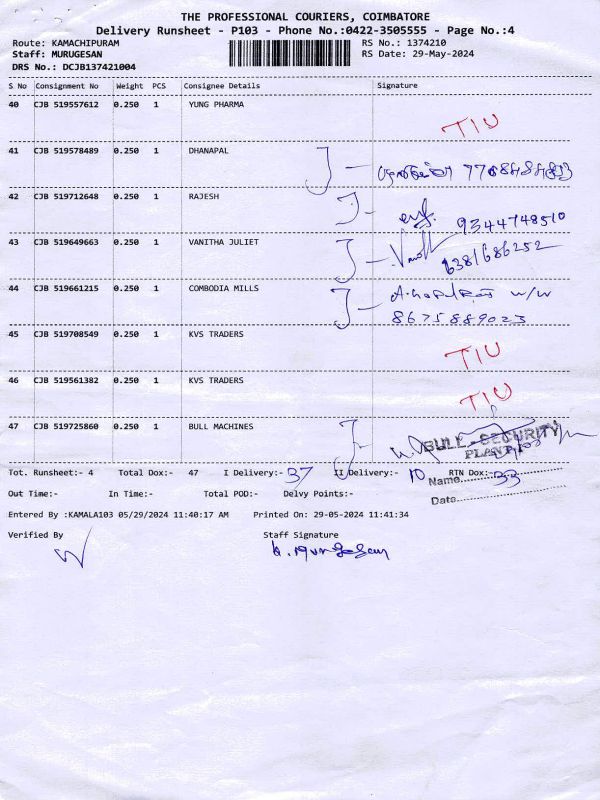 THE PROFESSIONAL COURIERS, COIMBATORE
Delivery Runsheet - P103 - Phone No.:0422-3505555 - Page No.:4
Route: KAMACHIPURAM RS No.: 1374210
Staff: MURUGESAN RS Date: 29-May-2024
DRS No.: DCJB137421004
S No Consignment No Weight PCS Consignee Details Signature
40 CJB 519557612 0.250 1 YUNG PHARMA TIU
41 CJB 519578489 0.250 1 DHANAPAL
42 CJB 519712648 0.250 1 RAJESH 9344748510
43 CJB 519649663 0.250 1 VANITHA JULIET 6381686252
44 CJB 519661215 0.250 1 COMBODIA MILLS W/W
8675889023
45 CJB 519708549 0.250 1 KVS TRADERS TIU
46 CJB 519561382 0.250 1 KVS TRADERS TIU
47 CJB 519725860 0.250 1 BULL MACHINES BULL - SECURITY
PLANT
Tot. Runsheet:- 4 Total Dox:- 47 I Delivery:- 37 II Delivery:- 10 RTN Dox:- 33
Name
Out Time:- In Time:- Total POD:- Delvy Points:-
Date
Entered By :KAMALA103 05/29/2024 11:40:17 AM Printed On: 29-05-2024 11:41:34
Verified By Staff Signature